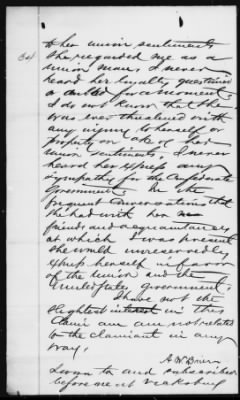 to her union sentiments
She regarded me as a
union man, I never
34
heard her loyalty questioned
or doubted for a moment
I do not know that she
was ever threatened with
any injury to herself or
property on acc of her
union sentiments, I never
heard her express any
sympathy for the Confederate
Government. In the
frequent conversations that
she had with her
friends and acquaintances
at which I was present
she would unreservedly
express herself in favor
of the union and the
United States government.
I have not the
slightest interest in this
claim am not related
to the claimant in any
way.
A W Brien
Sworn to and subscribed
before me at Vicksburg